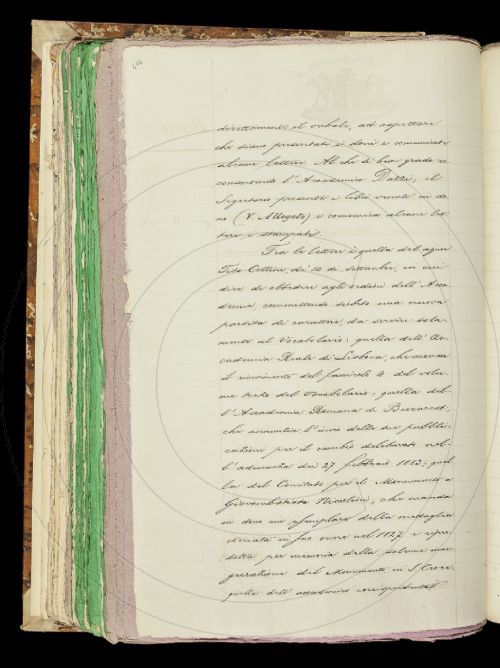 404
direttamente il verbale, ad aspettare
che siano presentati i doni e comunicate
alcune lettere. Al che di buon grado ac-
consentendo l'Accademico Dazzi, il
Segretario presenta i libri venuti in do-
no (V. Allegato) e comunica alcune let-
tere e stampati.
Tra le lettere è quella del signor
Tito Cellini, de' 14 di settembre, in cui
dice di obbedire agli ordini dell'Acca-
demia, commettendo subito una nuova
partita di carattere, da servire sola-
mente al Vocabolario; quella dell'Ac-
cademia Reale di Lisbona, che accusa
il ricevimento del fascicolo 4 del volu-
me del Vocabolario; quella del-
l'Accademia Rumana di Bucarest,
che annunzia l'invio delle sue pubbli-
cazioni per il cambio deliberato nel-
l'adunanza dei 27 febbraio 1882; quel-
la del Comitato per il Monumento a
Giovambatista Niccolini, che manda
in dono un esemplare della medaglia
coniata in suo onore nel 1827 e ripro-
dotta per memoria della solenne inau-
gurazione del Monumento in S. Croce;
quella dell'accademico corrispondente